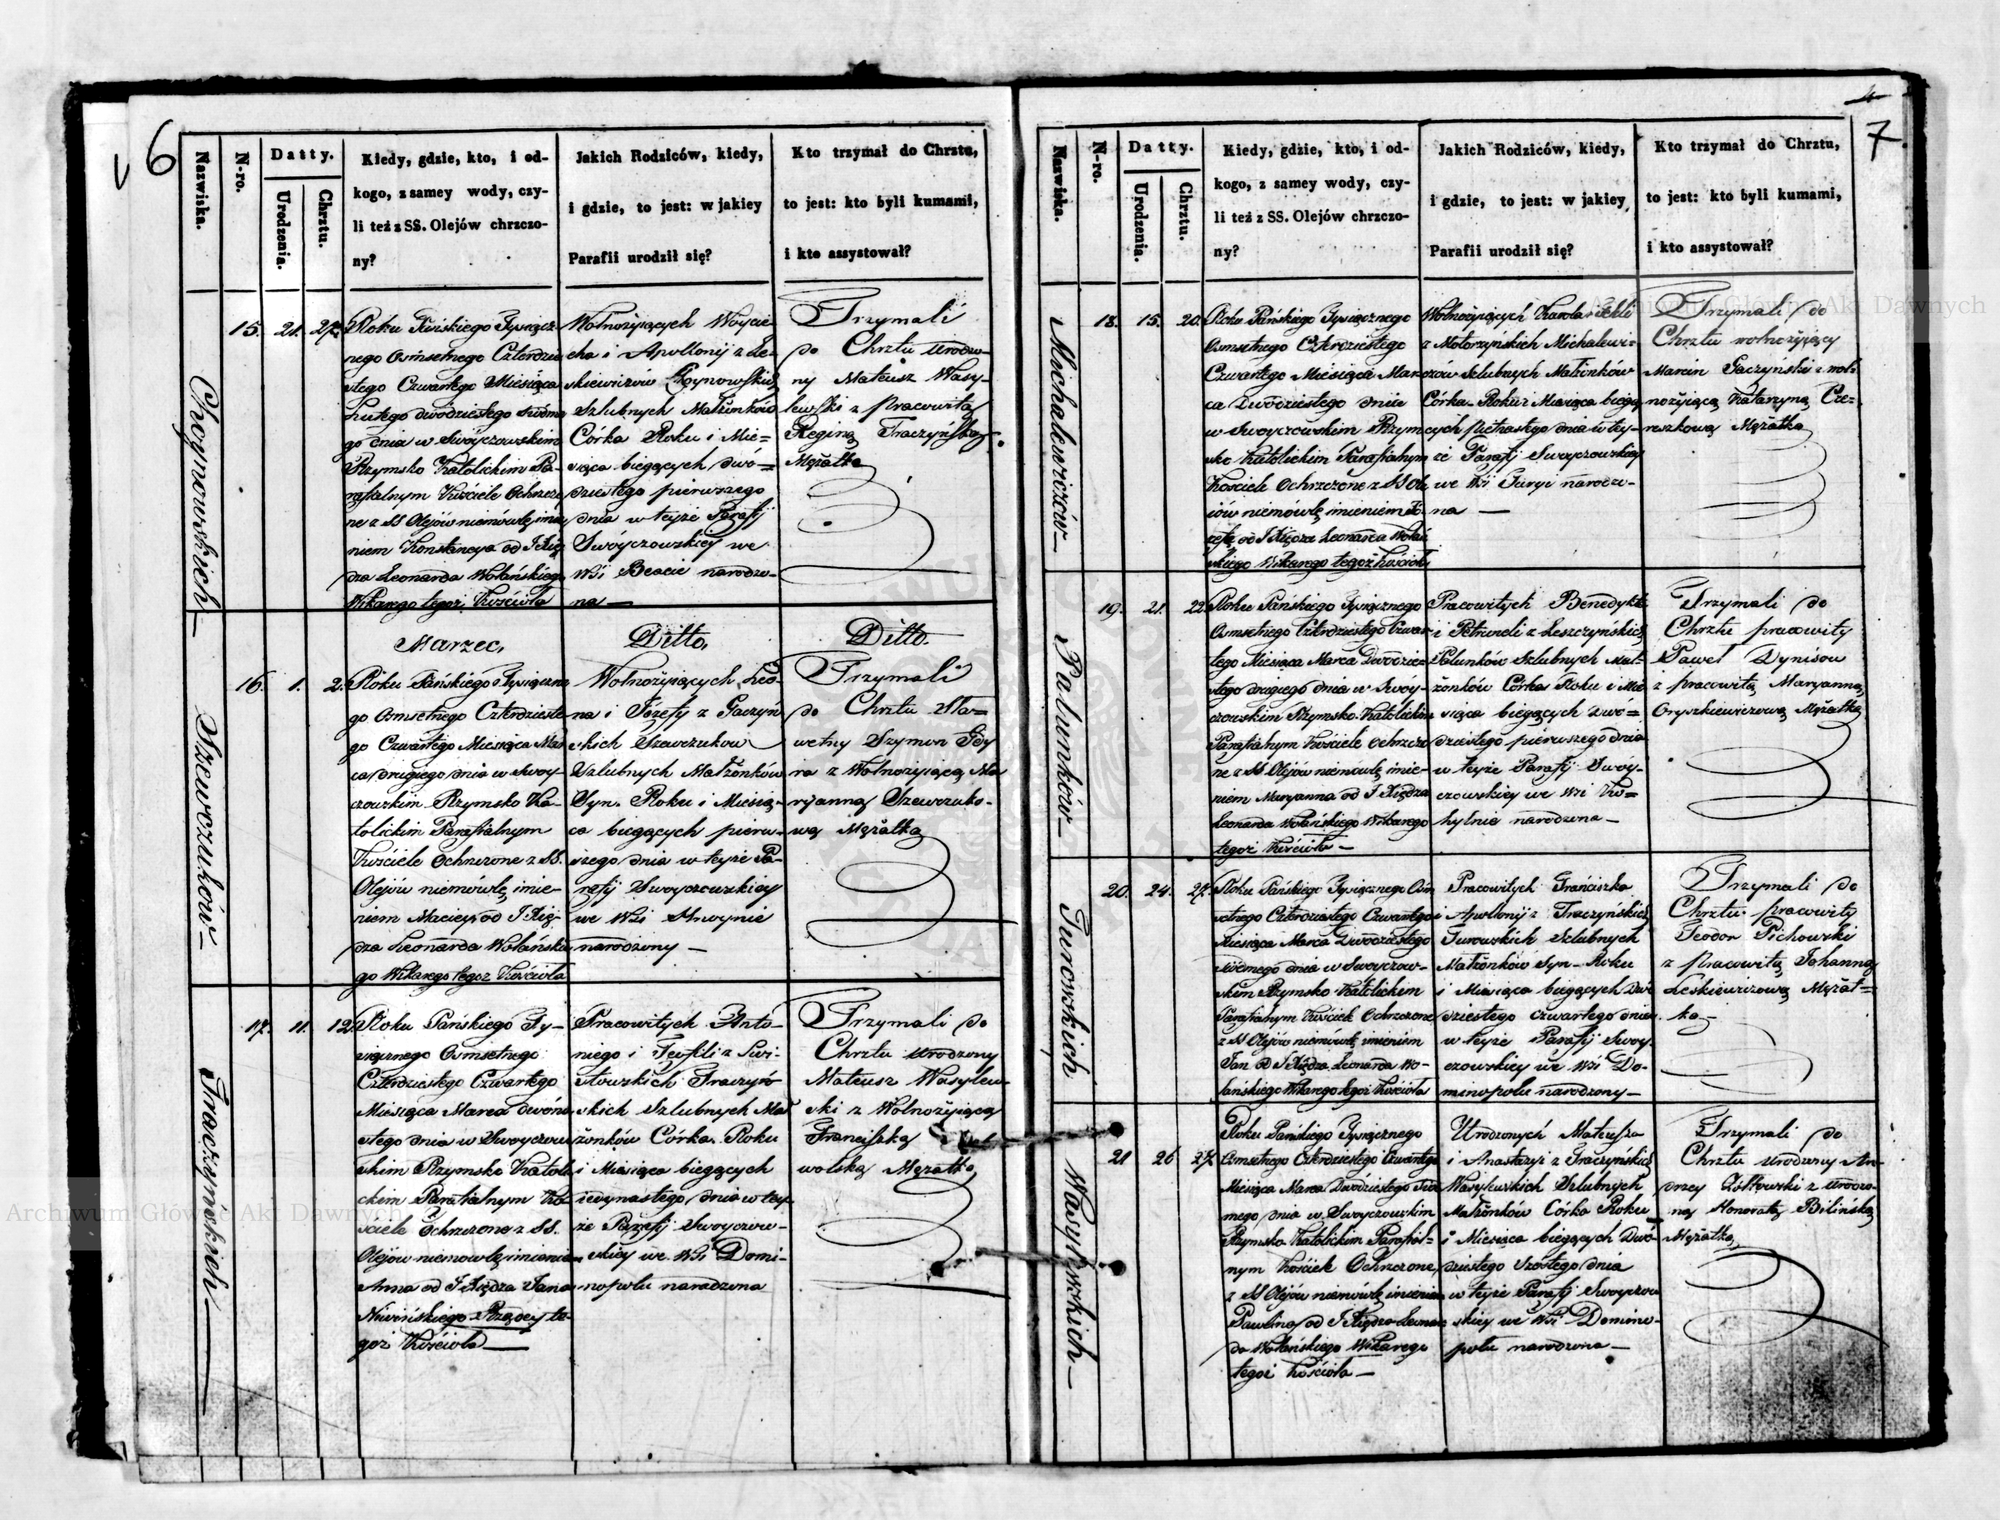 6
Nazwiska.
N-ro.
Datty.
Urodzenia.
Chrztu.
Kiedy, gdzie, kto, i od-
kogo, z samey wody, czy-
li też z SS. Olejów chrzczo-
ny?
Jakich Rodziców, kiedy,
i gdzie, to jest: w jakiey
Parafii urodził się?
Kto trzymał do Chrztu,
to jest: kto byli kumami,
i kto assystował?
Choynowskich
15. 21. 27.
Roku Pańskiego Tysiącz-
nego Ośmsetnego Czterdzie-
stego Czwartego Miesiąca
Lutego dwódziestego siódme-
go dnia w Swoyczowskim
Rzymsko Katolickim Pa-
rafialnym Kościele Ochrzczo-
ne z SS Olejów niemówlę imie-
niem Konstancya od J. Xię-
dza Leonarda Wołańskiego
Wikarego tegoż Kościoła
Wolnożyjących Woycie-
cha i Apollonij z Le-
skiewiczów Choynowskich
Szlubnych Małżonków
Córka Roku i Mie-
siąca bieżących dwó-
dziestego pierwszego
dnia w teyże Parafij
Swoyczowskiey we
Wsi narodzo-
na —
Trzymali
do Chrztu Urodzo-
ny Mateusz Wasy-
lewski z Pracowitą
Reginą Traczyńską
Mężatką
Marzec.
Ditto.
Ditto.
Szewczuków
16. 1. 2.
Roku Pańskiego Tysiączne-
go Ośmsetnego Czterdzieste-
go Czwartego Miesiąca Mar-
ca drugiego dnia w Swoy-
czowskim Rzymsko Ka-
tolickim Parafialnym
Kościele Ochrzczone z SS.
Olejów niemówlę imie-
niem Maciey od J. Xię-
dza Leonarda Wołańskie-
go Wikarego tegoż Kościoła
Wolnożyjących Leo-
na i Józefy z Gaczyń-
skich Szewczuków
Szlubnych Małżonków
Syn. Roku i Miesią-
ca bieżących pierw-
szego dnia w teyże Pa-
rafij Swoyczowskiey
we Wsi
narodzony —
Trzymali
do Chrztu Sła-
wetny Szymon
z Wolnożyjącą Ma-
ryanną Szewczuko-
wą Mężatką
Traczyńskich
17. 11. 12.
Roku Pańskiego Ty-
siącznego Ośmsetnego
Czterdziestego Czwartego
Miesiąca Marca dwóna-
stego dnia w Swoyczow-
skim Rzymsko Katoli-
ckim Parafialnym Ko-
ściele Ochrzczone z SS.
Olejów niemowlę imieniem
Anna od J. Xiędza Jana
Niwińskiego Rządcy te-
goż Kościoła
Pracowitych Anto-
niego i Teofili z
Traczyń-
skich Szlubnych Mał-
żonków Córka. Roku
i Miesiąca bieżących
iedynastego dnia w tey-
że Parafij Swoyczow-
skiey we Wsi Domi-
nopolu narodzona
Trzymali do
Chrztu Urodzony
Mateusz Wasylew-
ski z Wolnożyjącą
Franciszką
Mężatką
7
Nazwiska.
N-ro.
Datty.
Urodzenia.
Chrztu.
Kiedy, gdzie, kto, i od-
kogo, z samey wody, czy-
li też z SS. Olejów chrzczo-
ny?
Jakich Rodziców, kiedy,
i gdzie, to jest: w jakiey
Parafii urodził się?
Kto trzymał do Chrztu,
to jest: kto byli kumami,
i kto assystował?
Michalewiczów
18. 15. 20.
Roku Pańskiego Tysiącznego
Ośmsetnego Czterdziestego
Czwartego Miesiąca Mar-
ca Dwódziestego dnia
w Swoyczowskim Rzym-
sko Katolickim Parafialnym
Kościele Ochrzczone z SS Ole-
iów niemówlę imieniem Jó-
zefa od J. Xiędza Leonarda Wołań-
skiego Wikarego tegoż Kościoła
Wolnożyjących Karola i
z Motorzyńskich Michalewi-
czów Szlubnych Małżonków
Córka. Roku i Miesiąca bieżą-
cych piętnastego dnia w tey-
że Parafij Swoyczowskiey
we Wsi Turyi narodzo-
na —
Trzymali do
Chrztu wolnożyjący
Marcin Gaczyński z wol-
nożyjącą Katarzyną Cze-
reszkową Mężatką
Pałunków
19. 21. 22.
Roku Pańskiego Tysiącznego
Ośmsetnego Czterdziestego Czwar-
tego Miesiąca Marca Dwodzie-
stego drugiego dnia w Swoy-
czowskim Rzymsko Katolickim
Parafialnym Kościele Ochrzczo-
ne z SS Olejów niemówlę imie-
niem Maryanna od J. Xiędza
Leonarda Wołańskiego Wikarego
tegoż Kościoła —
Pracowitych Benedykta
i Petroneli z Leszczyńskich
Pałunków Szlubnych Mał-
żonków Córka Roku i Mie-
siąca bieżących dwó-
dziestego pierwszego dnia
w teyże Parafij Swoy-
czowskiey we Wsi Ko-
hylnie narodzona —
Trzymali do
Chrztu pracowity
Paweł Dynisow
z pracowitą Maryanną
Oryszkiewiczową Mężatką
Turowskich
20. 24. 27.
Roku Pańskiego Tysiącznego Ośm-
setnego Czterdziestego Czwartego
Miesiąca Marca Dwodziestego
siódmego dnia w Swoyczow-
skim Rzymsko Katolickim
Parafialnym Kościele Ochrzczone
z SS Olejów niemówlę imieniem
Jan od J. Xiędza Leonarda Wo-
łańskiego Wikarego tegoż Kościoła
Pracowitych Franciszka
i Apollonij z Traczyńskich
Turowskich Szlubnych
Małżonków Syn. Roku
i Miesiąca bieżących Dwó-
dziestego czwartego dnia
w teyże Parafij Swoy-
czowskiey we Wsi Do-
minopolu narodzony —
Trzymali do
Chrztu pracowity
Teodor Pichowski
z Pracowitą Johanną
Leskiewiczową Mężat-
ką —
Wasylewskich
21 26 27.
Roku Pańskiego Tysiącznego
Ośmsetnego Czterdziestego Czwartego
Miesiąca Marca Dwódziestego siód-
mego dnia w Swoyczowskim
Rzymsko Katolickim Parafial-
nym Kościele Ochrzczone
z SS Olejów niemówlę imieniem
Paulina od J. Xiędza Leonar-
da Wołańskiego Wikarego
tegoż Kościoła —
Urodzonych Mateusza
i Anastazyi z Traczyńskich
Wasylewskich Szlubnych
Małżonków Córka Roku
i Miesiąca bieżących Dwó-
dziestego szóstego dnia
w teyże Parafij Swoyczow-
skiey we Wsi Domino-
polu narodzona —
Trzymali do
Chrztu Urodzony An-
drzey Żółtowski z Urodzo-
ną Honoratą Bilińską
Mężatką
Archiwum Główne Akt Dawnych
Archiwum Główne Akt Dawnych